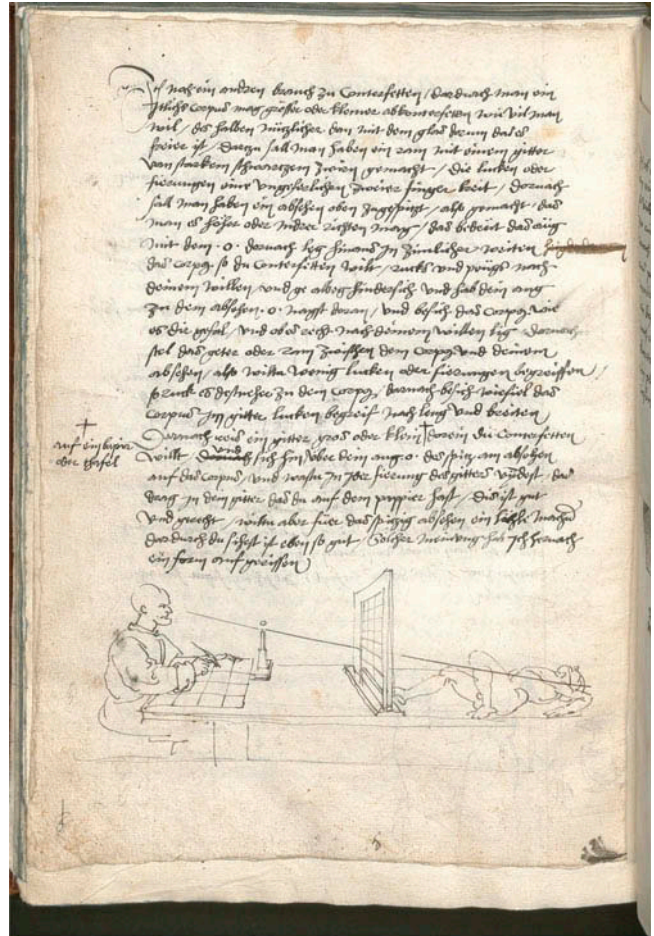 Ich noch ein andren brauch zu Conterfetten / dardurch man ein
Itlichs Corpus mag grosser oder kleiner abkonterfetten wie vil man
wil / des halben nützlicher dan mit dem glas darum das es
freier ist / Darzu sall man haben ein ram mit einem gitter
von starkem schwartzem zwirn gemacht / die lucken oder
fierungen eine ungeferlichen zweier finger breit / Dornach
sall man haben ein absehen oben zugespitzt / also gemacht / das
man es höher oder nidrer richten mag / das bedeut das aug
mit dem .o. dornach leg hinaus in zimlicher weiten
das corpus so du Conterfetten wilt / rucks und
deinem willen / und ge albeg hindersich und hab dein aug
zu dem absehen .o. doran / und besich das Corpus wie
es dir gefal / und ob es recht nach deinem willen lig Dornach
stel das geter oder ram zwischen dem Corpus und deinem
absehen / also wiltu wenig lucken oder fierungen begreiffen /
so ruck es dest neher zu dem Corpus / darnach besich wiefiel das
Corpus im gitter lucken begreif nach leng und breiten
Darnach reis ein gitter gros oder klein † dorein du Conterfetten
†
auf ein bapir
oder thafel
willt und sich hin über dein aug .o. des spitz am absehen
auf das Corpus / und wastu in jder fierung des gitters findest / das
drag in dem gitter das du auf dem pappier hast / Dis ist gut
und gerecht / wiltu aber fuer das spitzig absehen ein löchle machen
dardurch du sihest ist eben so gut / Solcher meinung hab ich hernach
ein form auf gerissen